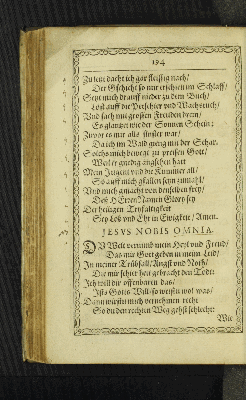 194
Zu letzt dacht ich gar fleissig nach/
Der Gschicht so mir erschien im Schlaff/
Setzt mich drauff nieder zu dem Buch/
Und sach mit grossen Freuden drein/
Es glantzet wie der Sonnen Schein:
Zuvor es mir alls finster war/
Da ich im Wald gieng mit der Schar.
Solchs mich bewegt zu preisen Gott/
Weil er gnädig angsehen hatt
Mein Jugent und die Kummer all/
So auff mich gfallen seyn zumahl/
Und mich gmacht von denselben frey/
Deß HErren Namen Glory sey
Der heiligen Tryfaltigkeit
Sey Lob und Ehr in Ewigkeit/ Amen.
JESUS NOBIS OMNIA.
DU Welt vernimb mein Hertz und Freud/
Das mir Gott geben in mein Leid/
In meiner Trübsall/ Angst und Noth/
Die mir schier hett gebracht den Todt:
Ich will dir offenbaren das/
Ists Gotts Will so
Dann wirstu mich vernehmen recht
So du den rechten Weg gehst schlecht:
Wie